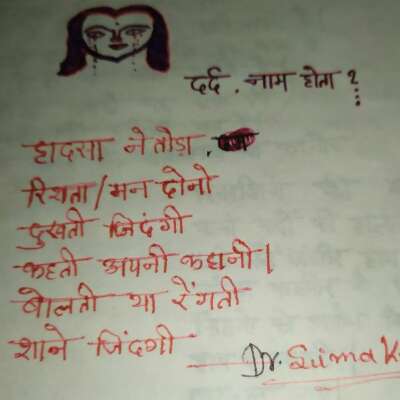 दर्द . नाम होता ?
हादसा ने तोड़ा .
रिश्ता/मन दोनो
दुखती जिदंगी
कहती अपनी कहानी।
बोलती या रेंगती
शाने जिंदगी
Dr. Suma K